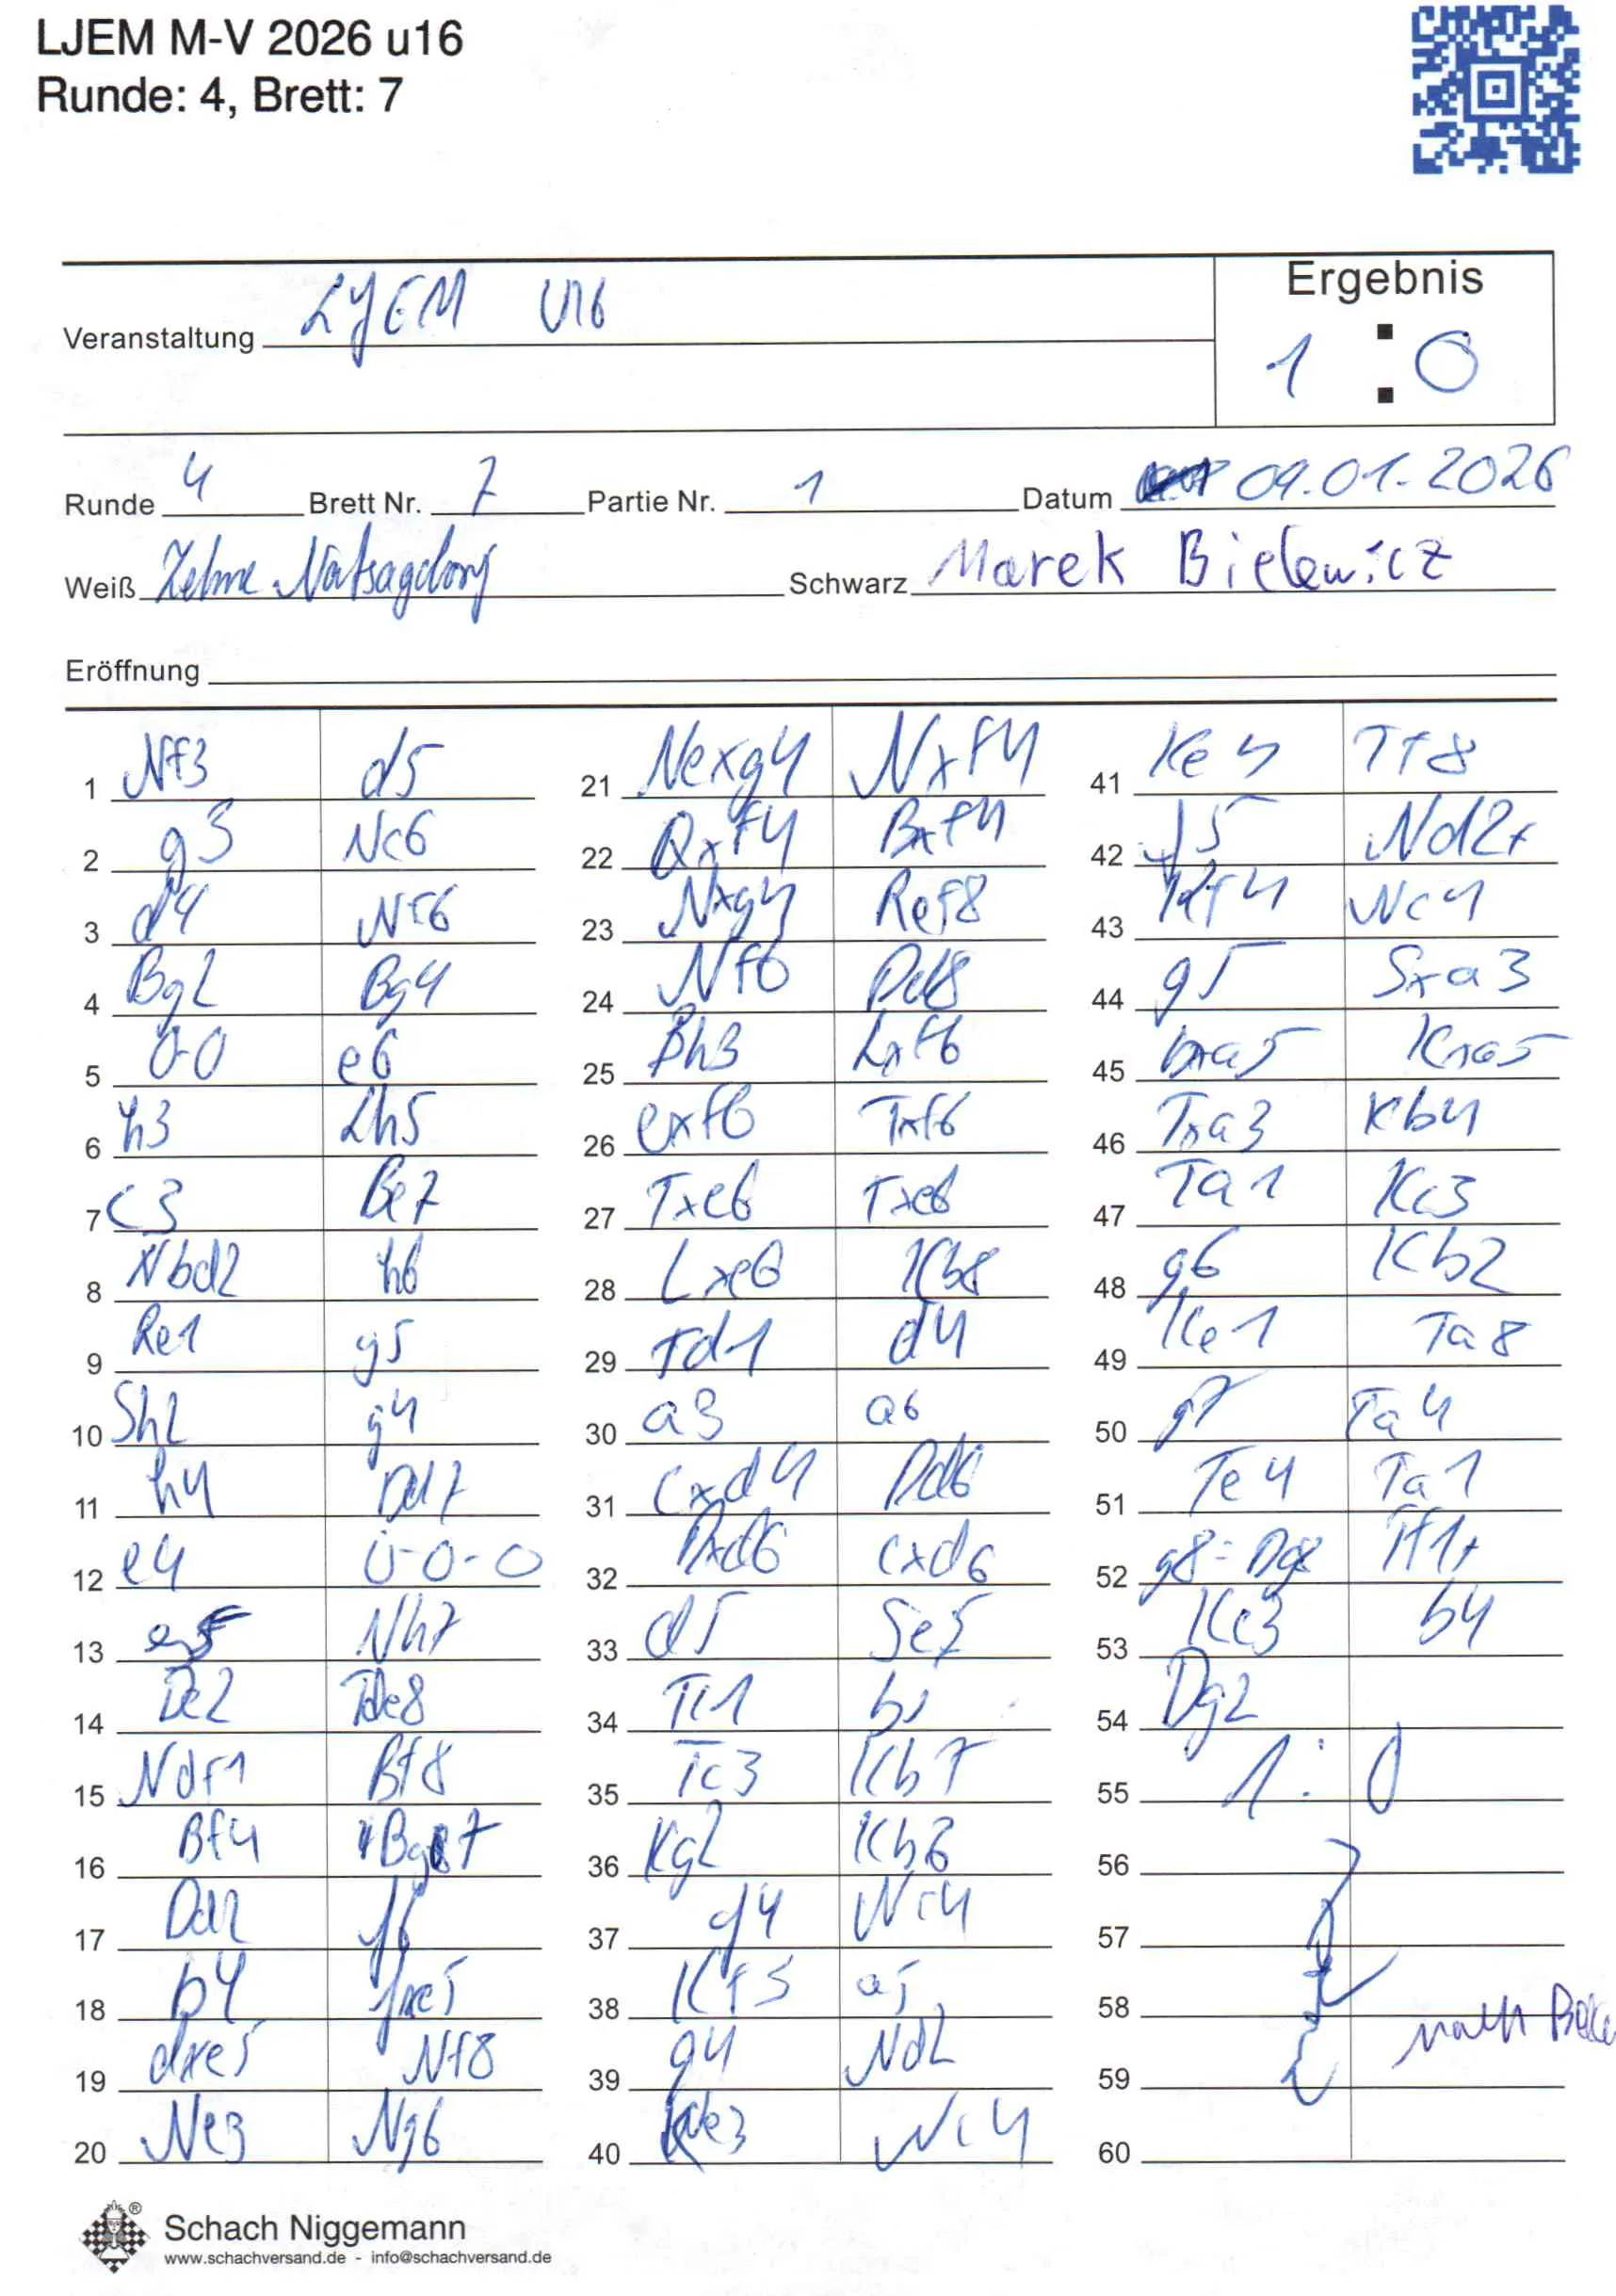 LJEM M-V 2026 u16
Runde: 4, Brett: 7
Ergebnis
Veranstaltung LJEM U16
1 : 0
Runde 4 Brett Nr. 7 Partie Nr. 1 Datum 09.01.2026
Weiß Schwarz Marek Bielewicz
Eröffnung
1 Nf3 d5 21 Nexg4 Nxf4 41 Ke4 Tf8
2 g3 Nc6 22 Qxf4 Bxf4 42 f5 Nd2+
3 d4 Nf6 23 Nxg4 Ref8 43 Kf4 Nc4
4 Bg2 Bg4 24 Nf6 Dd8 44 g5 Sxa3
5 0-0 e6 25 Bh3 Lxf6 45 bxa5 Kxa5
6 h3 Lh5 26 exf6 Txf6 46 Txa3 Kb4
7 c3 Be7 27 Txe6 Txe6 47 Ta1 Kc3
8 Nbd2 h6 28 Lxe6 Kb8 48 g6 Kb2
9 Re1 g5 29 Td1 d4 49 Ke1 Ta8
10 Sh2 g4 30 a3 a6 50 g7 Ta4
11 h4 Dd7 31 cxd4 Dd6 51 Te4 Ta1
12 e4 0-0-0 32 Dxd6 cxd6 52 g8=Dg8 Tf1+
13 e5 Nh7 33 d5 Se5 53 Ke3 b4
14 De2 Tde8 34 Tc1 b5 54 Dg2
15 Ndf1 Bf8 35 Tc3 Kb7 55 1:0
16 Bf4 Bg7 36 Kg2 Kb6 56
17 Dd2 f6 37 f4 Nc4 57
18 b4 fxe5 38 Kf3 a5 58 nach
19 dxe5 Nf8 39 g4 Nd2 59
20 Ne3 Ng6 40 Ke3 Nc4 60
Schach Niggemann
www.schachversand.de - info@schachversand.de